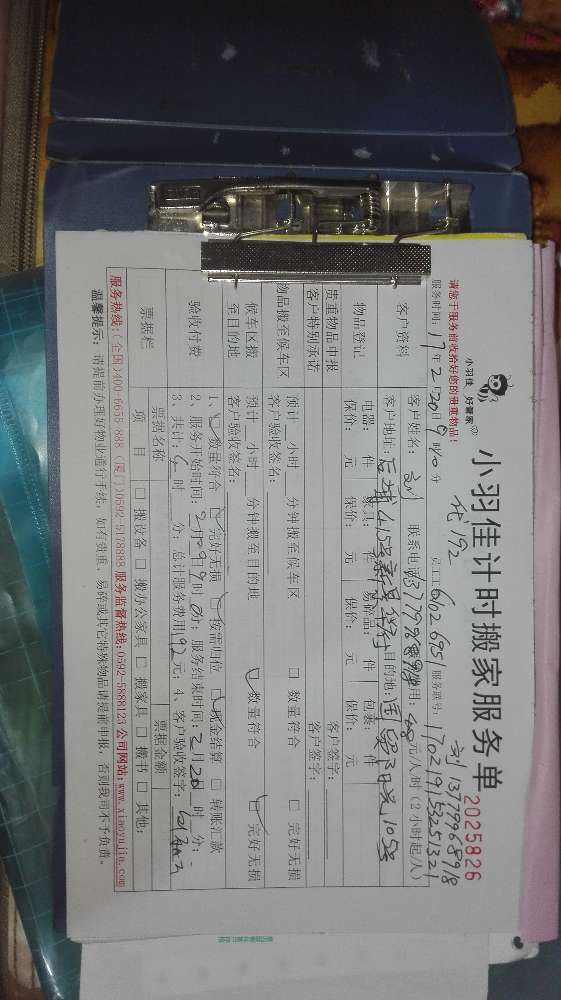 小羽佳 好管家
小羽佳计时搬家服务单
2025826
代192
刘13779968918
请您于服务前收拾好您的贵重物品!
服务时间: 17年2月20日9时0分 员工 服务跟号: 170219153251321
客户资料 客户姓名: 刘 联系电话 13779968918 费用: 48元/人/时 (2小时起/人)
客户地址: 目的地:
物品登记 电器: 件 家具: 件 易碎品: 件 包裹: 件
保价: 元 保价: 元 保价: 元 保价: 元
贵重物品申报 客户签字:
客户特别承诺 客户签字:
物品搬至候车区 预计 小时 分钟搬至候车区 □ 数量符合 □ 完好无损
客户验收签名:
候车区搬至目的地 预计 小时 分钟搬至目的地 数量符合 完好无损
客户验收签名:
验收付费 1、 数量符合 完好无损 按需归位 现金结算 □ 转账汇款
2、服务开始时间: 2月20日9时0分; 服务结束时间: 2月20日 时 分;
3、共计: 时 分; 总计服务费用192元; 4、客户验收签字:
票据栏 票据名称 票据金额
项 目 □ 搬设备 □ 搬办公家具 □ 搬家具 □ 搬书 □ 其他:
服务热线:(全国)400-6655-888 (厦门)0592-5178888 服务监督热线:0592-5888123 公司网站:www.xiaoyujia.com
温馨提示: 请提前办理好物业通行手续, 如有贵重、易碎或其它特殊物品请提前申报, 否则我司不予负责。